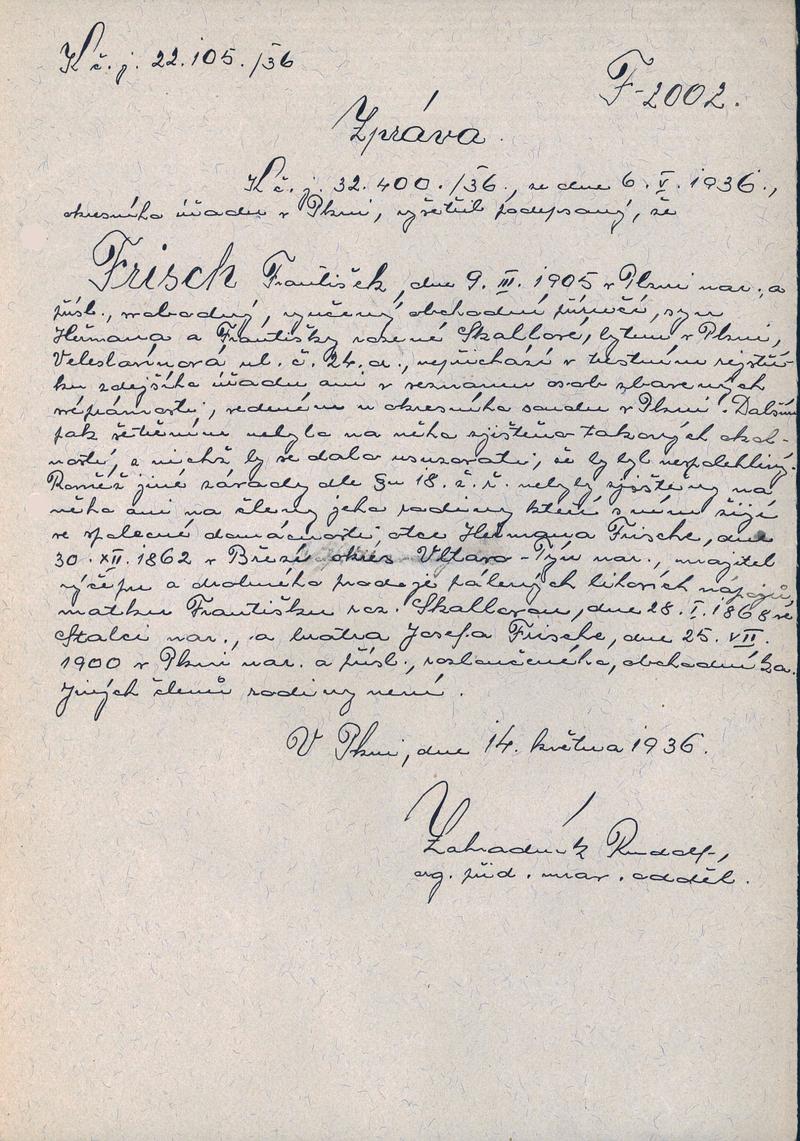 K č. j. 22.105./36
F-2002.
Zpráva.
K č. j. 32.400./36., ze dne 6. V. 1936.,
okresního úřadu v Plzni, vyšetřil podepsaný, že
Frisch František, dne 9. III. 1905 v Plzni nar., a
přísl., svobodný, vyučený obchodní příručí, syn
Heřmana a Františky rozené Skallové, bytem v Plzni,
Veleslavínová ul. č. 24.a., nepřichází v trestním rejstří-
ku zdejšího úřadu ani v seznamu osob zbavených
svéprávnosti, vedeném u okresního soudu v Plzni. Dalším
pak šetřením nebylo na něho zjištěno takových okol-
ností, z nichž by se dalo usuzovati, že by byl nespolehlivý.
Rovněž jiné závady dle §u 18. ž. ř. nebyly zjištěny na
něho ani na členy jeho rodiny kteří s ním žijí
ve společné domácnosti, otce Heřmana Frische, dne
30. XII. 1862 v Březí okres Vltavo-Týn nar., majitel
výčepu a drobného prodeje pálených lihových nápojů,
matku Františku roz. Skallovou, dne 28. I. 1868 ve
Stalci nar., a bratra Josefa Frische, dne 25. VII.
1900 v Plzni nar. a přísl., rozloučeného, obchodní za.
Jiných členů rodiny není.
V Plzni, dne 14. května 1936.
Zahradník Rudolf,
ag. příd. mrav. odděl.